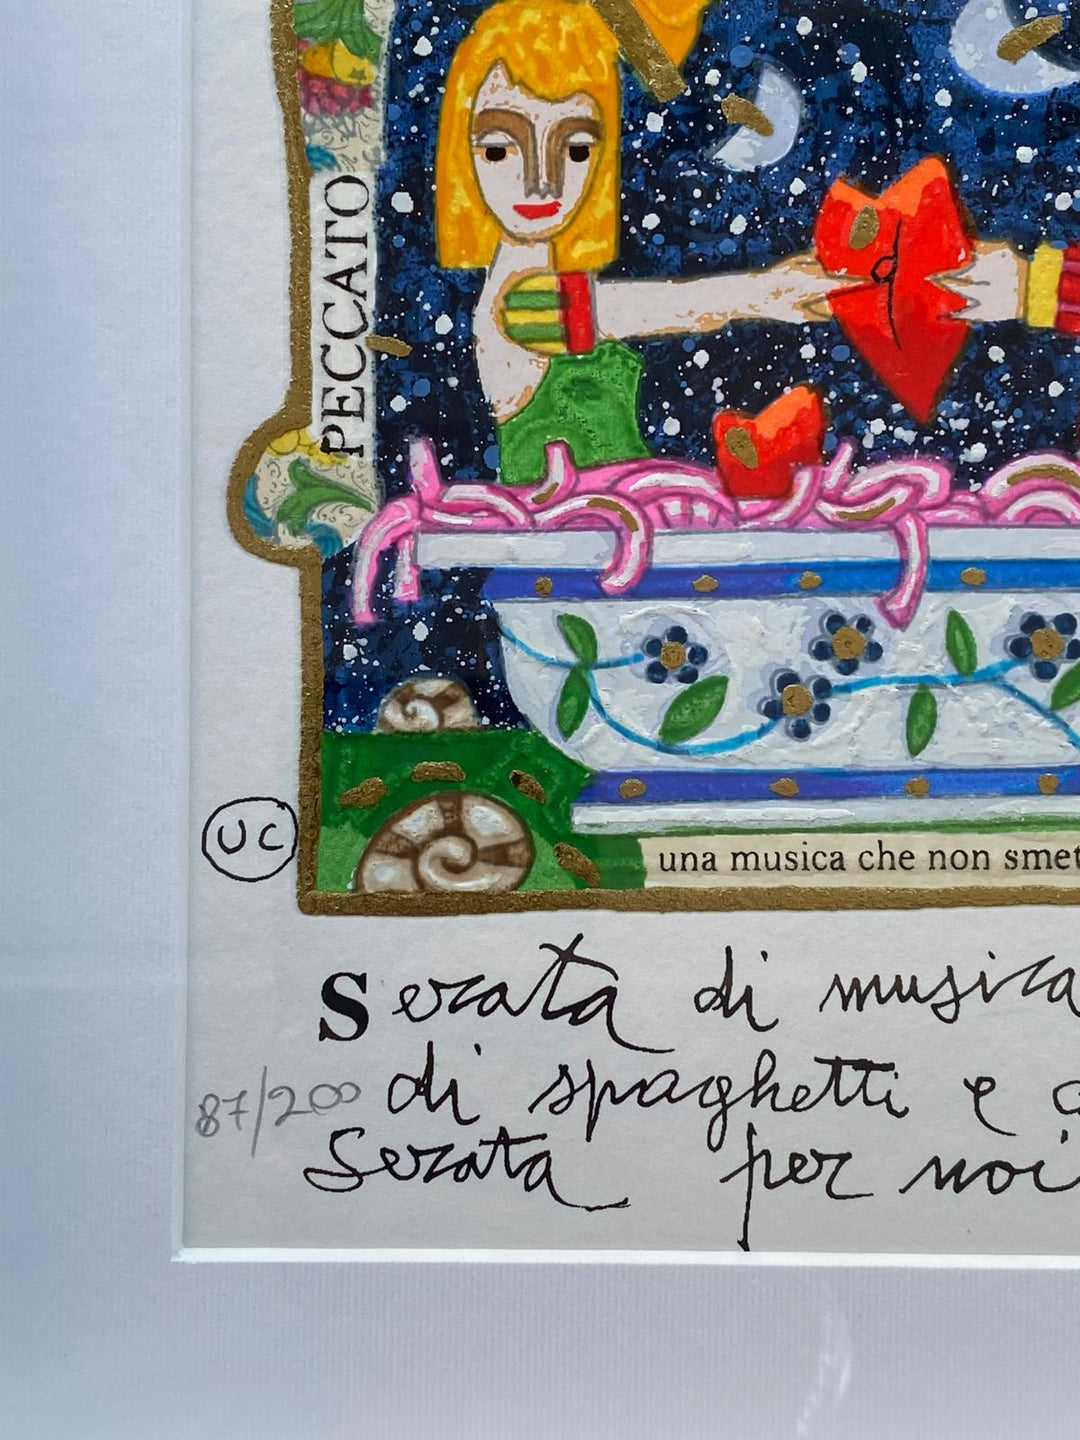 PECCATO
UC
una musica che non smet
Serata di musica
di spaghetti e
87/200
Serata per noi